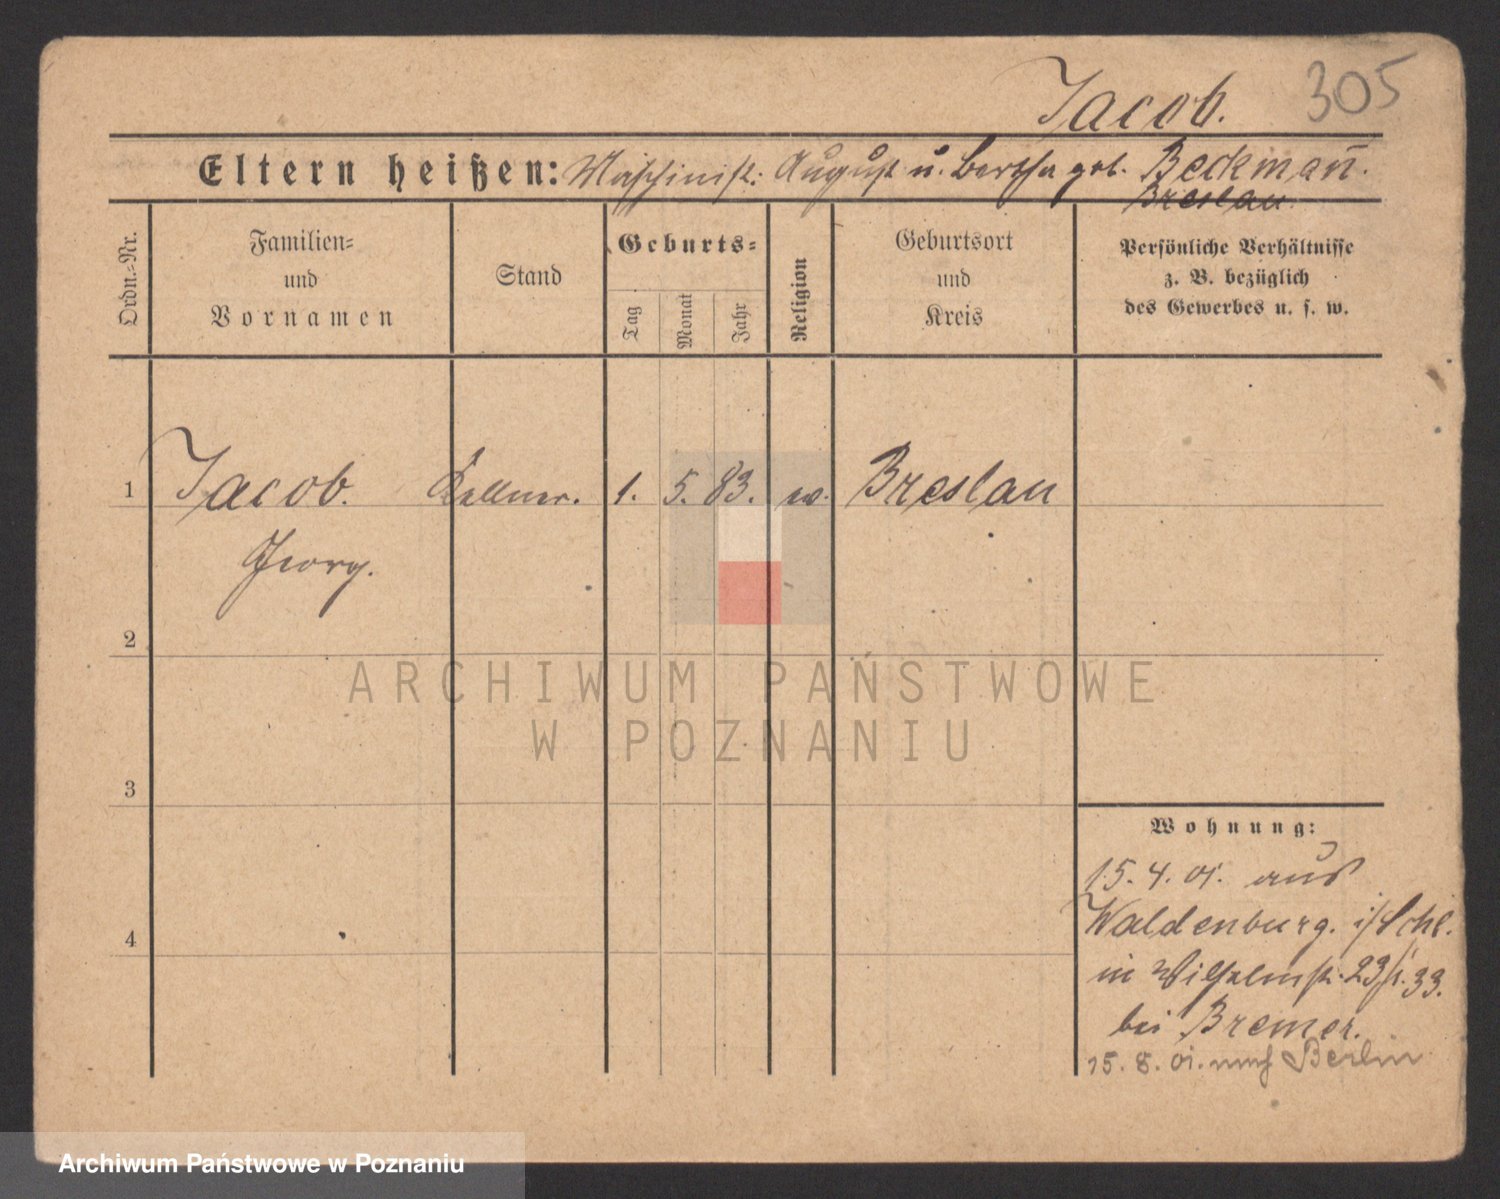 305
Jacob.
Eltern heißen: Maschinist: August u. Bertha geb. Beckman̄.
Breslau.
Ordn.-Nr.
Familien-
und
Vornamen
Stand
Geburts-
Tag
Monat
Jahr
Religion
Geburtsort
und
Kreis
Persönliche Verhältnisse
z. B. bezüglich
des Gewerbes u. s. w.
1 Jacob. Kellner. 1. 5. 83. ev. Breslau
Georg.
2
3
4
Wohnung:
15. 4. 01. aus
Waldenburg. i/Schl.
in Wilhelmst. 23/
bei Bremer.
15. 8. 01. nach Berlin
ARCHIWUM PAŃSTWOWE
W POZNANIU
Archiwum Państwowe w Poznaniu